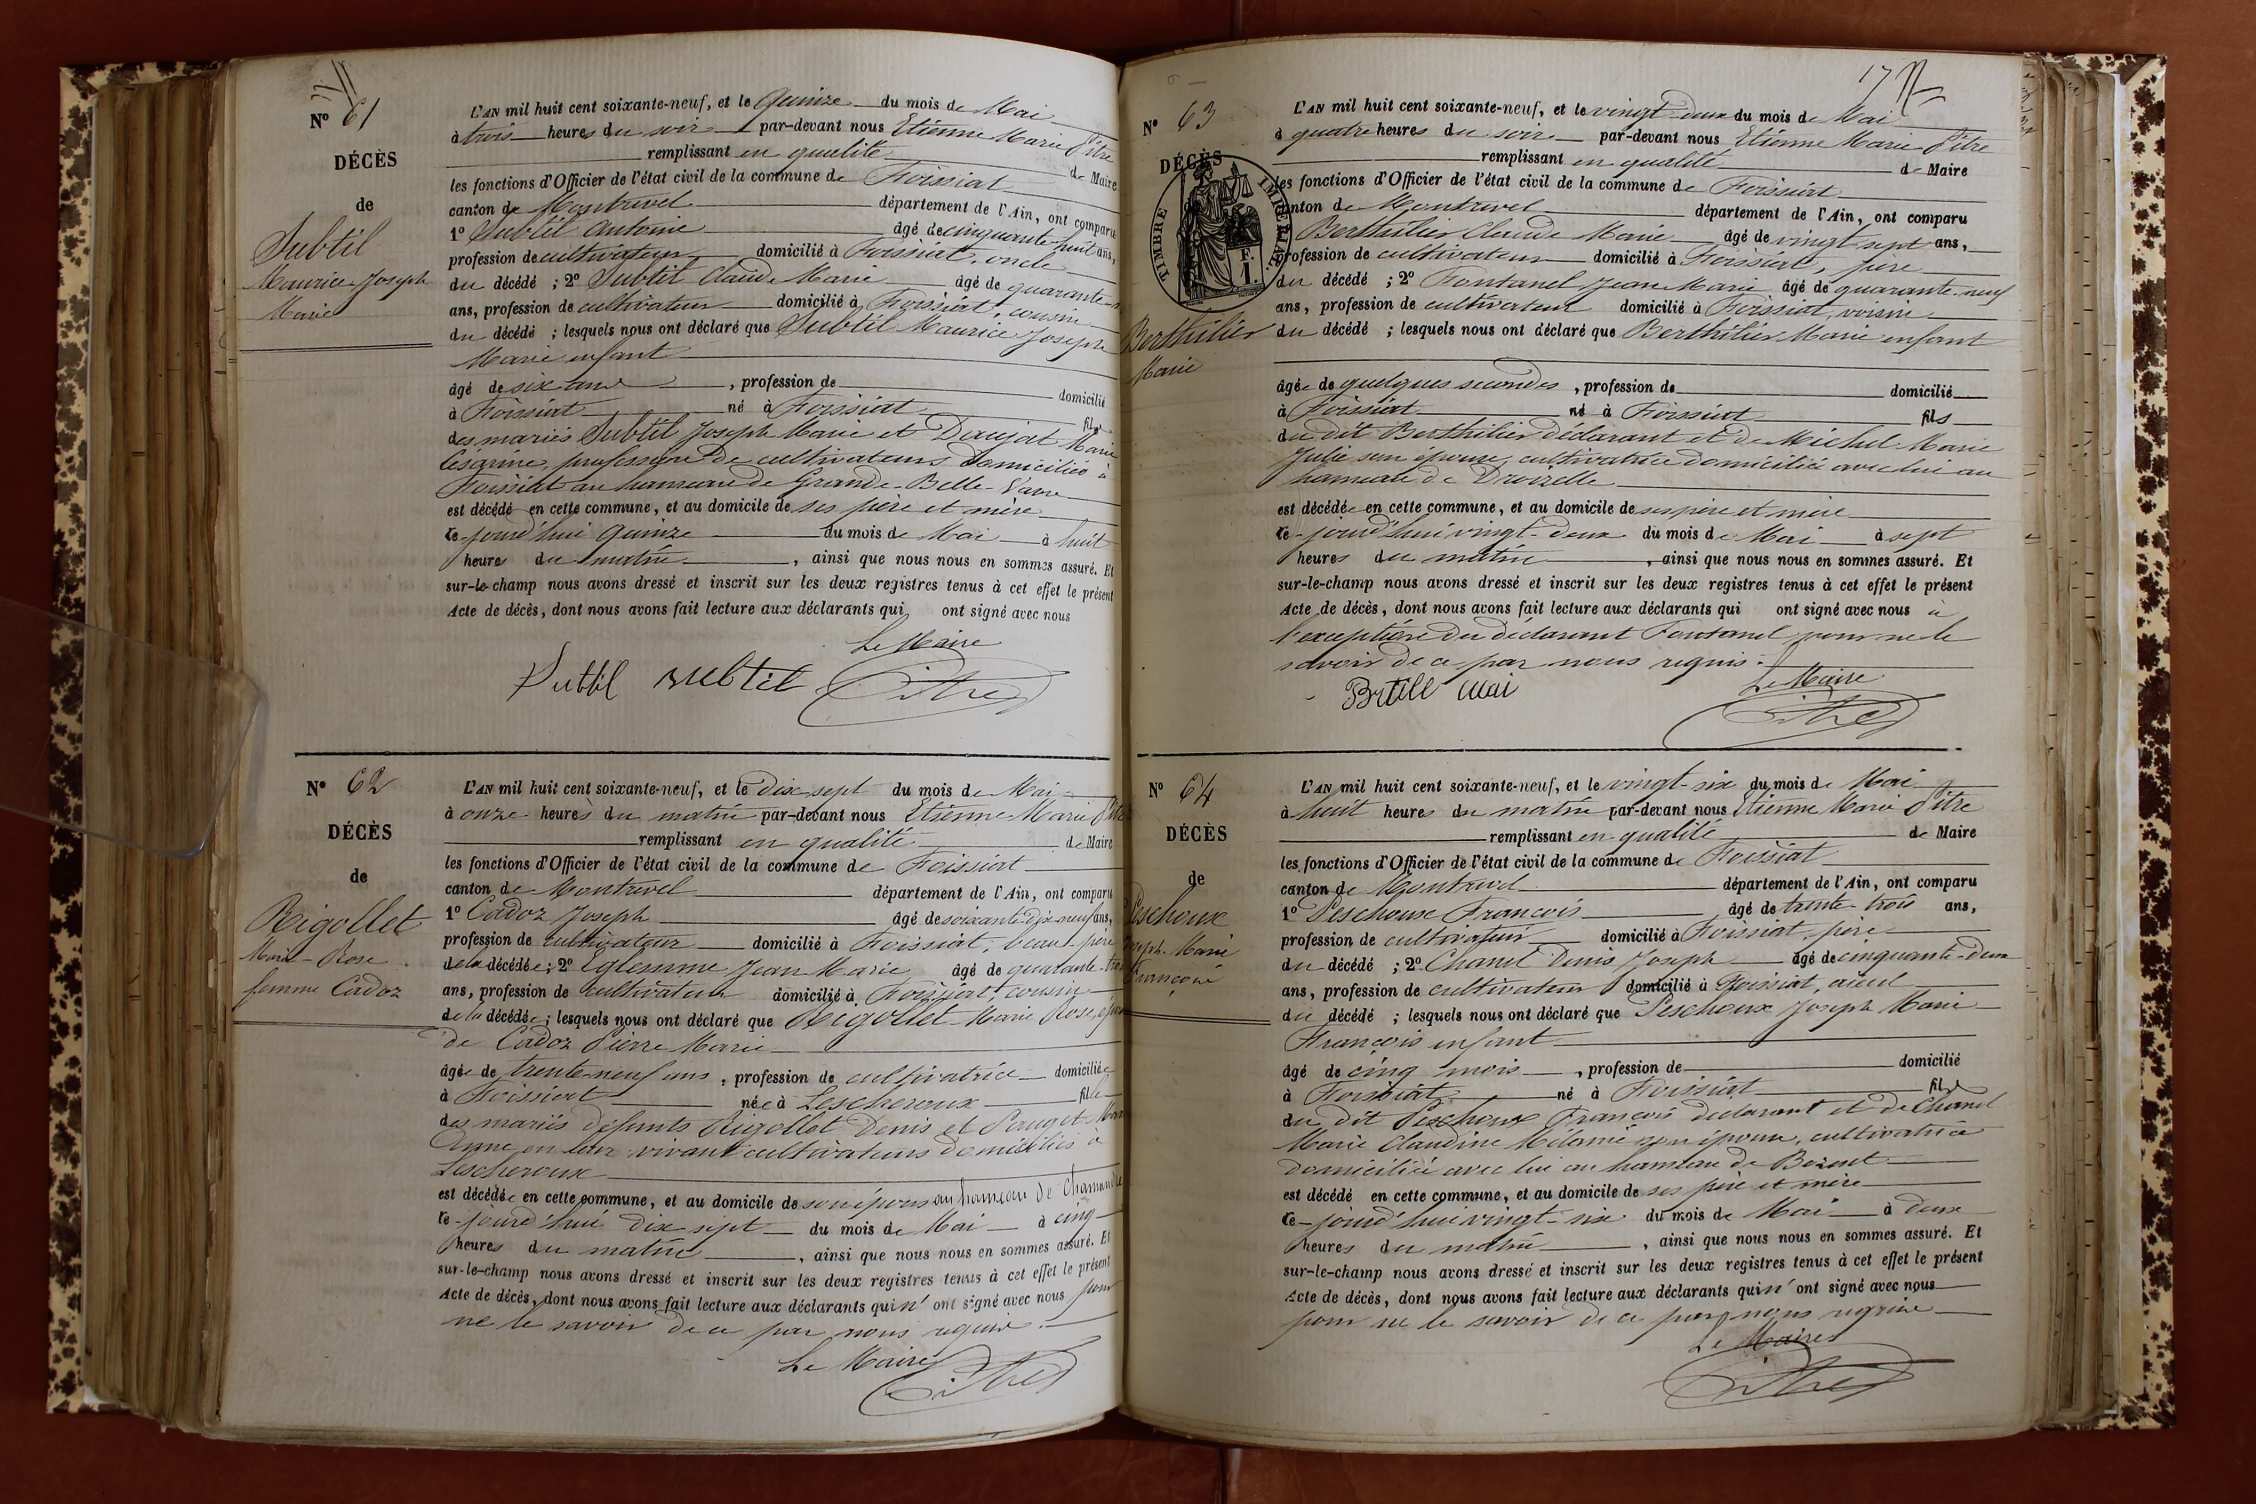 N° 61
DÉCÈS
de
Subtil
Maurice Joseph
Marie
L'AN mil huit cent soixante-neuf, et le Quinze du mois de Mai
à trois heures du soir par-devant nous Etienne Marie Pitre
remplissant en qualité de Maire
les fonctions d'Officier de l'état civil de la commune de Foissiat
canton de Montrevel département de l'Ain, ont comparu
1° Subtil Antoine âgé de cinquante huit ans,
profession de cultivateur domicilié à Foissiat, oncle
du décédé ; 2° Subtil Claude Marie âgé de quarante
ans, profession de cultivateur domicilié à Foissiat, cousin
du décédé ; lesquels nous ont déclaré que Subtil Maurice Joseph
Marie enfant
âgé de six ans, profession de domicilié
à Foissiat né à Foissiat fils
des mariés Subtil Joseph Marie et Daujat Marie
Césarine, profession de cultivateurs domiciliés à
Foissiat au hameau de Grande-Belle-Vavre
est décédé en cette commune, et au domicile de ses père et mère
ce-jourd'hui quinze du mois de Mai à huit
heures du matin, ainsi que nous nous en sommes assuré. Et
sur-le-champ nous avons dressé et inscrit sur les deux registres tenus à cet effet le présent
Acte de décès, dont nous avons fait lecture aux déclarants qui ont signé avec nous
Le Maire
Subtil subtil Pitre
N° 62
DÉCÈS
de
Rigollet
Marie-Rose
femme Cadoz
L'AN mil huit cent soixante-neuf, et le dix sept du mois de Mai
à onze heures du matin par-devant nous Etienne Marie Pitre
remplissant en qualité de Maire
les fonctions d'Officier de l'état civil de la commune de Foissiat
canton de Montrevel département de l'Ain, ont comparu
1° Cadoz Joseph âgé de soixante dix neuf ans,
profession de cultivateur domicilié à Foissiat, beau-père
de la décédée ; 2° Eglemme Jean Marie âgé de quarante-trois
ans, profession de cultivateur domicilié à Foissiat, cousin
de la décédée ; lesquels nous ont déclaré que Rigollet Marie Rose, épouse
de Cadoz Pierre Marie
âgée de trente-neuf ans, profession de cultivatrice domiciliée
à Foissiat née à Lescheroux fille
des mariés défunts Rigollet Denis et Pauget Marie
Anne en leur vivant cultivateurs domiciliés à
Lescheroux
est décédée en cette commune, et au domicile de son époux au hameau de
ce-jourd'hui dix sept du mois de Mai à cinq
heures du matin, ainsi que nous nous en sommes assuré. Et
sur-le-champ nous avons dressé et inscrit sur les deux registres tenus à cet effet le présent
Acte de décès, dont nous avons fait lecture aux déclarants qui n'ont signé avec nous pour
ne le savoir de ce par nous requis.
Le Maire
Pitre
17
N° 63
DÉCÈS
TIMBRE IMPÉRIAL
F.
1.
Berthilier
Marie
L'AN mil huit cent soixante-neuf, et le vingt-deux du mois de Mai
à quatre heures du soir par-devant nous Etienne Marie Pitre
remplissant en qualité de Maire
les fonctions d'Officier de l'état civil de la commune de Foissiat
canton de Montrevel département de l'Ain, ont comparu
Berthilier Claude Marie âgé de vingt sept ans,
profession de cultivateur domicilié à Foissiat, père
du décédé ; 2° Fontanel Jean Marie âgé de quarante-neuf
ans, profession de cultivateur domicilié à Foissiat, voisin
du décédé ; lesquels nous ont déclaré que Berthilier Marie enfant
âgée de quelques secondes, profession de domicilié
à Foissiat né à Foissiat fils
du dit Berthilier déclarant et de Michel Marie
Julie son épouse, cultivatrice domiciliée avec lui au
hameau de Druizelle
est décédée en cette commune, et au domicile de ses père et mère
ce-jourd'hui vingt-deux du mois de Mai à sept
heures du matin, ainsi que nous nous en sommes assuré. Et
sur-le-champ nous avons dressé et inscrit sur les deux registres tenus à cet effet le présent
Acte de décès, dont nous avons fait lecture aux déclarants qui ont signé avec nous à
l'exception du déclarant Fontanel pour ne le
savoir de ce par nous requis.
Le Maire
Pitre
N° 64
DÉCÈS
de
Peschoux
Joseph-Marie
François
L'AN mil huit cent soixante-neuf, et le vingt-six du mois de Mai
à huit heures du matin par-devant nous Etienne Marie Pitre
remplissant en qualité de Maire
les fonctions d'Officier de l'état civil de la commune de Foissiat
canton de Montrevel département de l'Ain, ont comparu
1° Peschoux François âgé de trente-trois ans,
profession de cultivateur domicilié à Foissiat, père
du décédé ; 2° Chanel Denis Joseph âgé de cinquante-deux
ans, profession de cultivateur domicilié à Foissiat, aïeul
du décédé ; lesquels nous ont déclaré que Peschoux Joseph Marie
François enfant
âgé de cinq mois, profession de domicilié
à Foissiat né à Foissiat fils
du dit Peschoux François déclarant et de Chanel
Marie Claudine Mélanie son épouse, cultivatrice
domiciliée avec lui au hameau de Bozont
est décédé en cette commune, et au domicile de ses père et mère
ce-jourd'hui vingt-six du mois de Mai à deux
heures du matin, ainsi que nous nous en sommes assuré. Et
sur-le-champ nous avons dressé et inscrit sur les deux registres tenus à cet effet le présent
Acte de décès, dont nous avons fait lecture aux déclarants qui n'ont signé avec nous
pour ne le savoir de ce par nous requis
Le Maire
Pitre